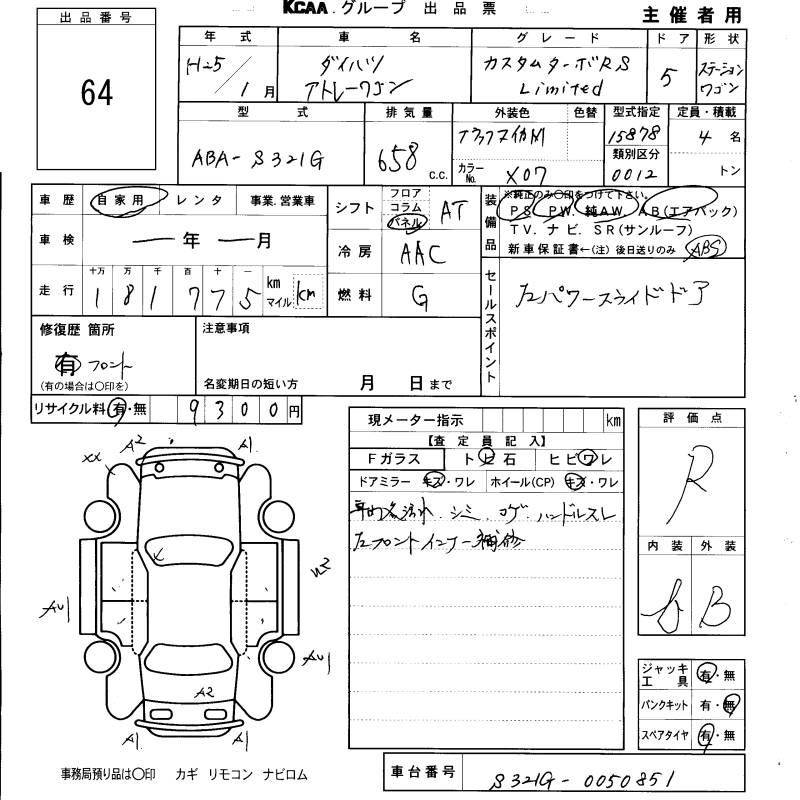 KCAA グループ 出品票
主催者用
出品番号
64
年式 車名 グレード ドア 形状
H25/1月 ダイハツ アトレーワゴン カスタムターボRS Limited 5 ステーションワゴン
型式 排気量 外装色 色替 型式指定 定員・積載
ABA-S321G 658 C.C. ブラックマイカM 15878 4名
カラーNo. X07 類別区分 0012 トン
車歴 自家用 レンタ 事業.営業車
シフト フロア コラム パネル AT
装備品 ※純正のみ○印をつけて下さい。
PS PW 純AW. AB(エアバック)
TV. ナビ. SR(サンルーフ)
新車保証書←(注)後日送りのみ ABS
車検 ー年 ー月
冷房 AAC
走行 十万 万 千 百 十 一
181775 km マイル km
燃料 G
セールスポイント 左パワースライドドア
修復歴 箇所
有 フロント
(有の場合は○印を)
注意事項
名変期日の短い方 月 日まで
リサイクル料 有・無 9300円
現メーター指示 km
【査定員記入】
Fガラス トビ石 ヒビワレ
ドアミラー キズ・ワレ ホイール(CP) キズ・ワレ
車内 汚れ、シミ、コゲ、ハンドルスレ
左フロントインナー補修
評価点
R
内装 外装
B
XX A2 A1
W2
AU1
AU1
A2
A1 A1
ジャッキ工具 有・無
パンクキット 有・無
スペアタイヤ 有・無
事務局預り品は○印 カギ リモコン ナビロム
車台番号 S321G-0050851